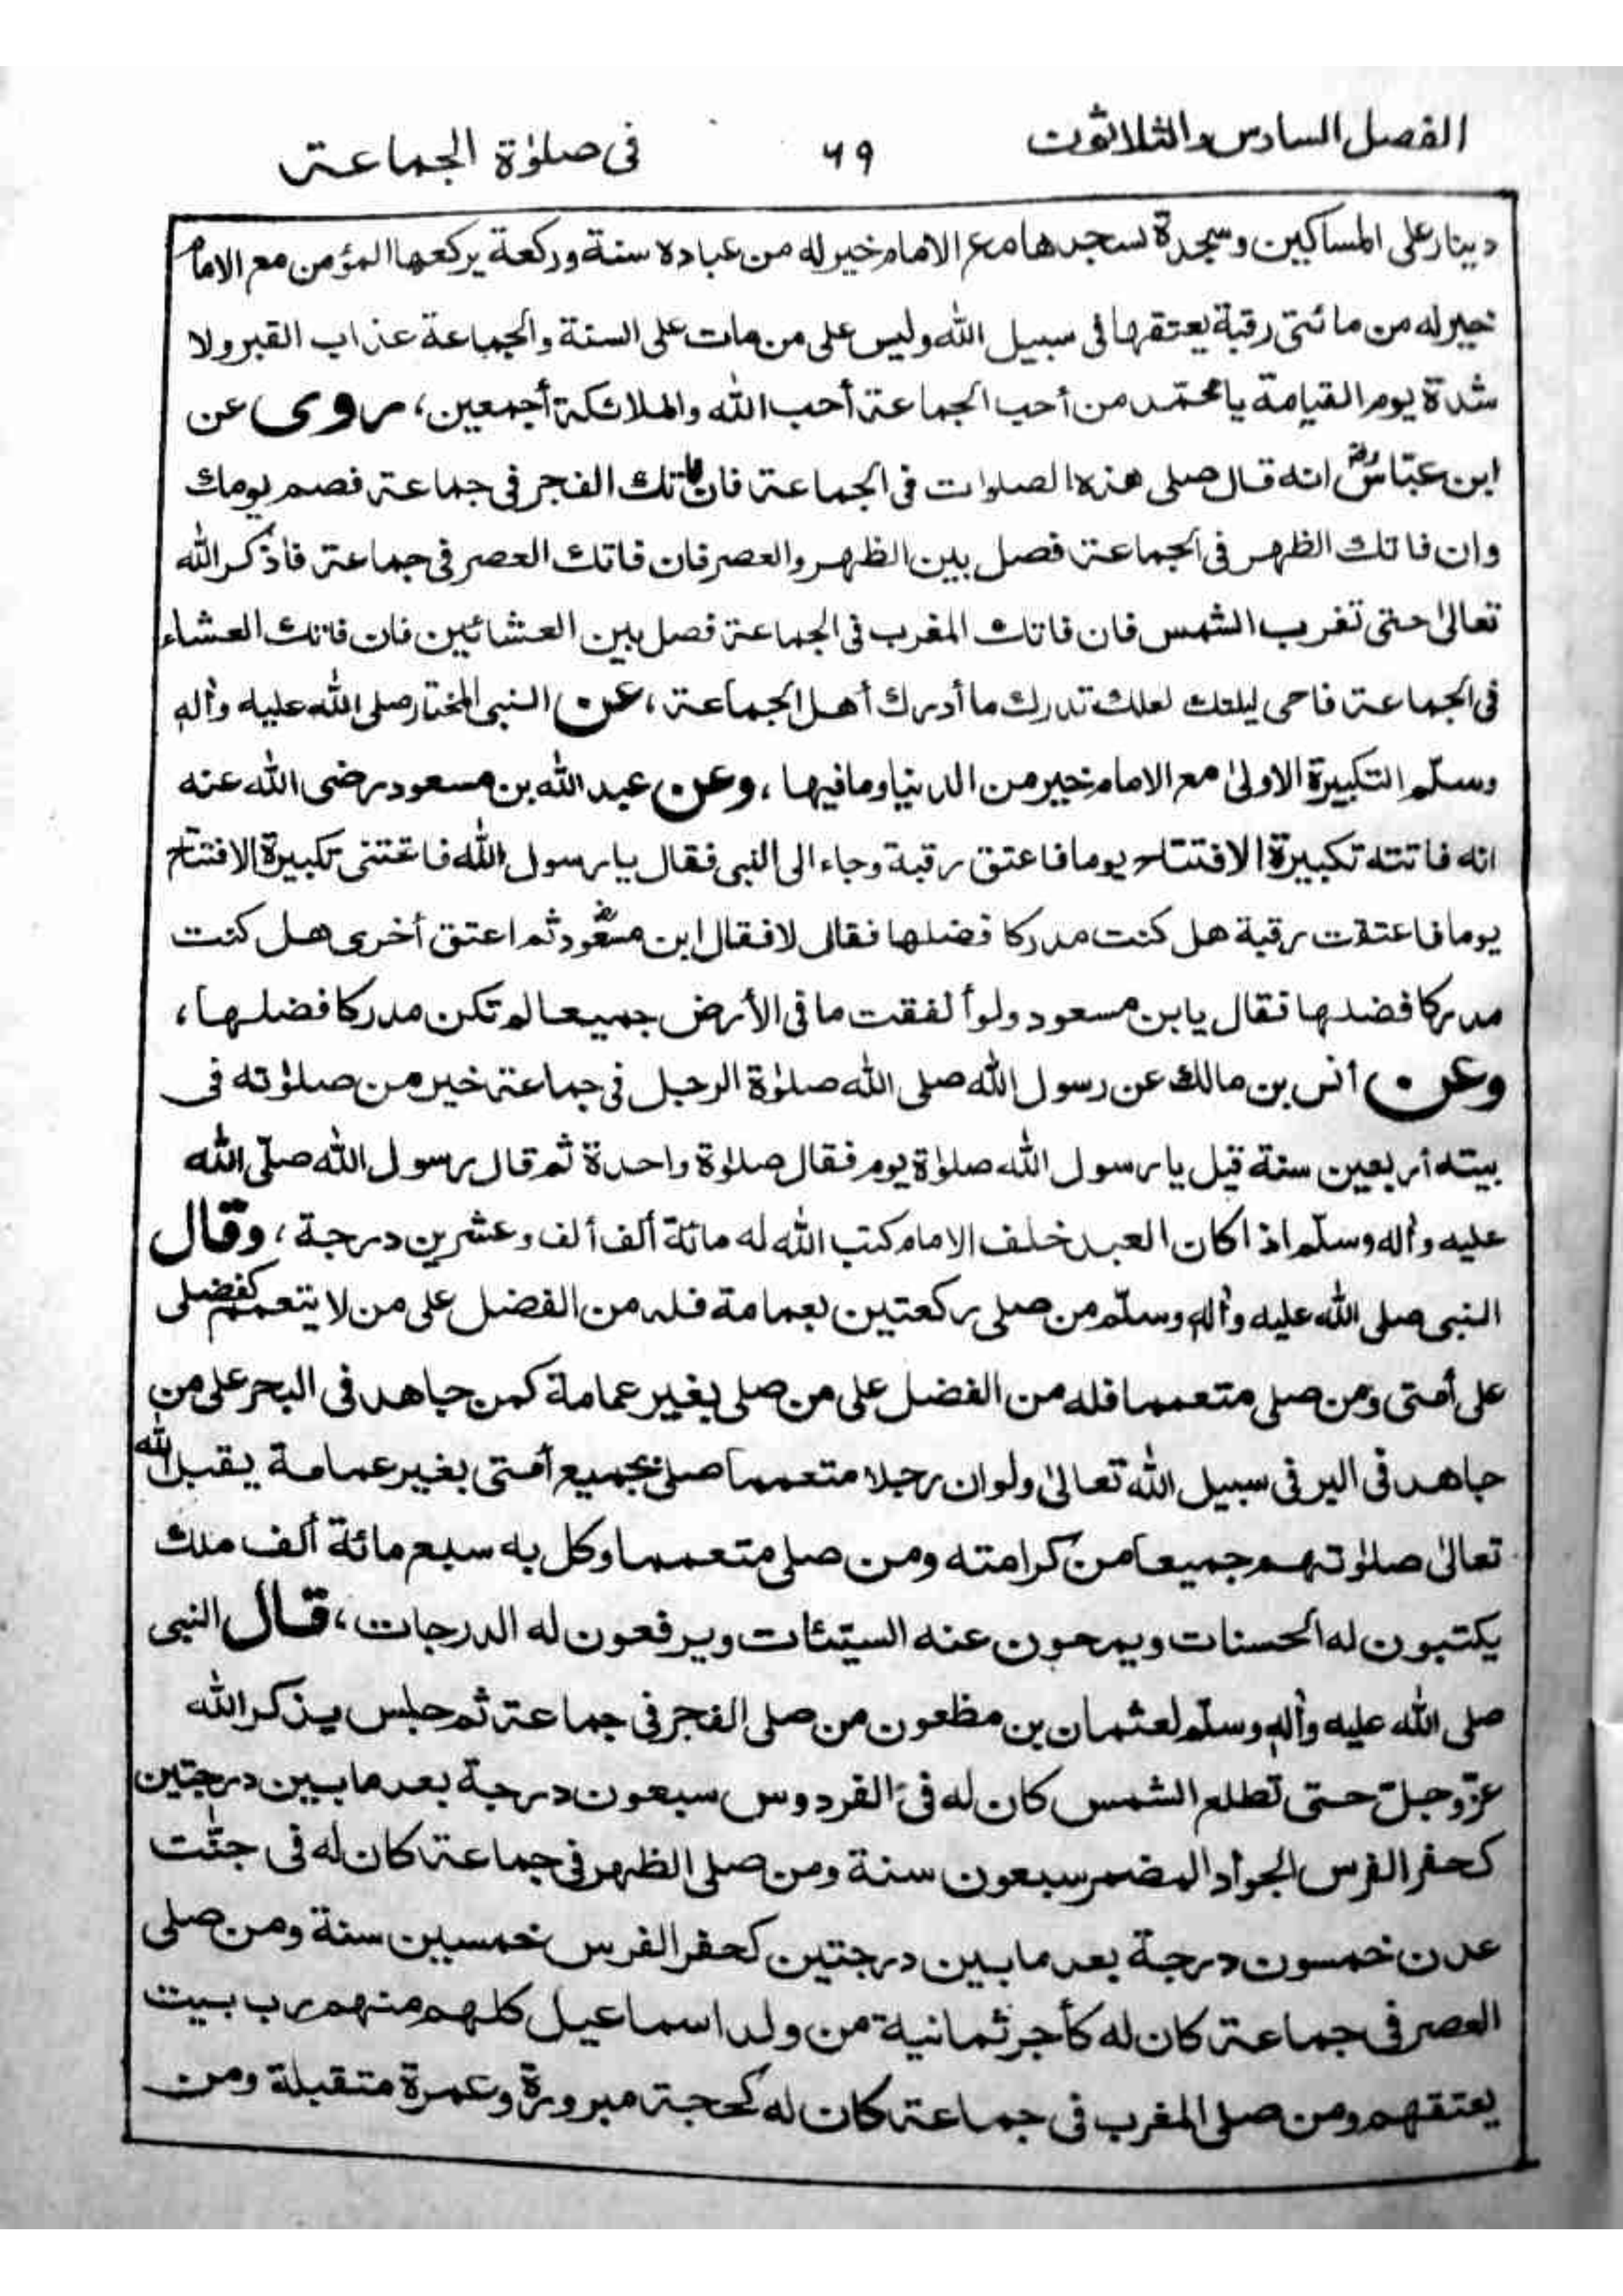 الفصل السادس والثلاثون
٦٩
فى صلوٰة الجماعة
دينار على المساكين وسجدة سجدها مع الامام خير له من عبادة سنة وركعة يركعها المؤمن مع الامام
خير له من مائتى رقبة يعتقها فى سبيل الله وليس على من مات على السنة والجماعة عذاب القبر ولا
شدة يوم القيامة يا محمّد من أحب الجماعة أحب الله والملائكة أجمعين، روى عن
ابن عبّاسؓ انه قال صلى هذه الصلوات فى الجماعة فان فاتك الفجر فى جماعة فصم يومك
وان فاتك الظهر فى الجماعة فصل بين الظهر والعصر فان فاتك العصر فى جماعة فاذكر الله
تعالىٰ حتى تغرب الشمس فان فاتك المغرب فى الجماعة فصل بين العشائين فان فاتك العشاء
فى الجماعة فاحى ليلتك لعلك تدرك ما أدرك أهل الجماعة، عن النبى المختار صلى الله عليه وأله
وسلّم التكبيرة الاولىٰ مع الامام خير من الدنيا ومافيها، وعن عبد الله بن مسعود رضى الله عنه
انه فاتته تكبيرة الافتتاح يوما فاعتق رقبة وجاء الى النبى فقال يا رسول الله فاتتنى تكبيرة الافتتاح
يوما فاعتقت رقبة هل كنت مدركا فضلها فقال لا فقال ابن مسعودؓ ثم اعتق أخرى هل كنت
مدركا فضلها فقال يا بن مسعود ولو أنفقت ما فى الأرض جميعا لم تكن مدركا فضلها،
وعن أنس بن مالك عن رسول الله صلى الله صلوٰة الرجل فى جماعة خير من صلوٰته فى
بيته أربعين سنة قيل يا رسول الله صلوٰة يوم فقال صلوٰة واحدة ثم قال رسول الله صلّى الله
عليه وأله وسلّم اذا كان العبد خلف الامام كتب الله له مائة ألف ألف وعشرين درجة، وقال
النبى صلى الله عليه وأله وسلّم من صلى ركعتين بعمامة فله من الفضل على من لا يتعمم كفضلى
على أمتى ومن صلى متعمما فله من الفضل على من صلى بغير عمامة كمن جاهد فى البحر على من
جاهد فى البر فى سبيل الله تعالىٰ ولو ان رجلا متعمما صلى بجميع أمتى بغير عمامة يقبل الله
تعالىٰ صلوٰتهم جميعا من كرامته ومن صلى متعمما وكل به سبع مائة ألف ملك
يكتبون له الحسنات ويمحون عنه السيّئات ويرفعون له الدرجات، قال النبى
صلى الله عليه وأله وسلّم لعثمان بن مظعون من صلى الفجر فى جماعة ثم جلس يذكر الله
عزّ وجلّ حتى تطلع الشمس كان له فى الفردوس سبعون درجة بعد ما بين درجتين
كحفر الفرس الجواد المضمر سبعون سنة ومن صلى الظهر فى جماعة كان له فى جنّٰت
عدن خمسون درجة بعد ما بين درجتين كحفر الفرس خمسين سنة ومن صلى
العصر فى جماعة كان له كأجر ثمانية من ولد اسماعيل كلهم منهم رب بيت
يعتقهم ومن صلى المغرب فى جماعة كان له كحجة مبرورة وعمرة متقبلة ومن